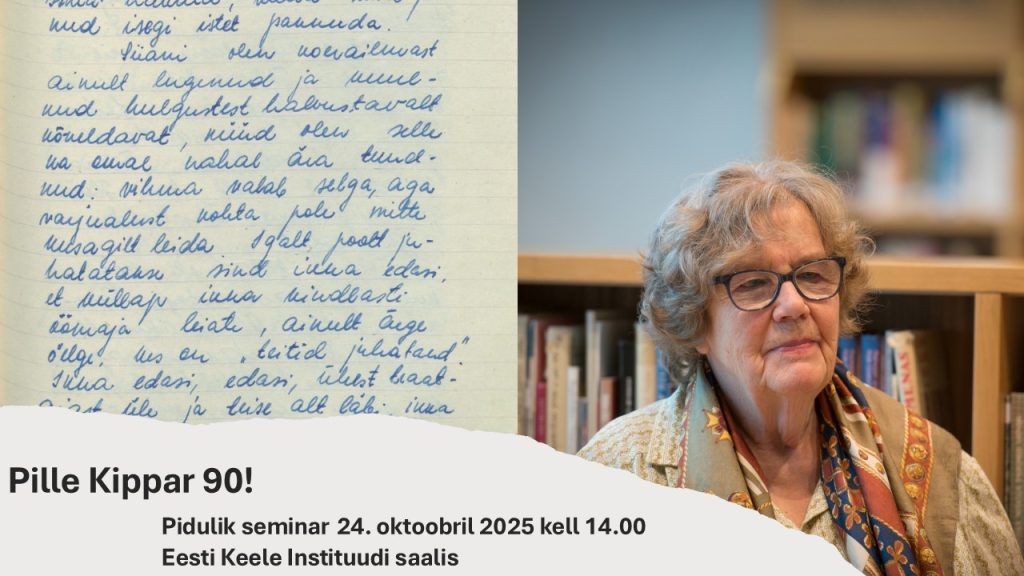 nud isegi istet pakkuda.
Siiani olen koerailmast
ainult lugenud ja kuul-
nud hulgustest halvustavalt
kõneldavat, nüüd olen selle
ka omal nahal ära tund-
nud: vihma valab selga, aga
varjualust kohta pole mitte
kusagilt leida. Igalt poolt ju-
hatatakse sind ikka edasi,
et küllap ikka kindlasti
öömaja leiate, ainult ärge
öelge, kes on „teitid juhatand".
Ikka edasi, edasi, ühest traat-
aiast üle ja teise alt läbi, ikka
MENAS
Pille Kippar 90!
Pidulik seminar 24. oktoobril 2025 kell 14.00
Eesti Keele Instituudi saalis